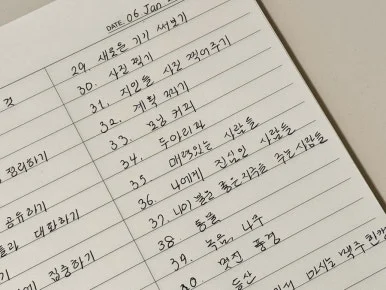 DATE. 06 Jan
29. 새로운 기기 써보기
30. 사진 찍기
31. 지인들 사진 찍어주기
32. 계획 짜기
33. 모닝 커피
34. 두아리파
35. 매력있는 사람들
36. 나에게 진심인 사람들
37. 나에게 좋은 자극을 주는 사람들
38 동물
39. 녹음, 나무
40. 멋진 풍경
등산
마시는 맥주 한캔
것
정리하기
공유하기
들과 대화하기
기
집중하기